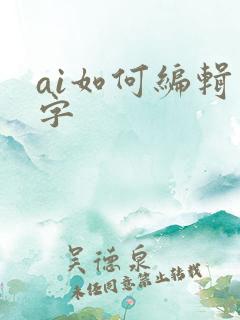 ai如何編輯
字
吴德泉
未经同意禁止转载